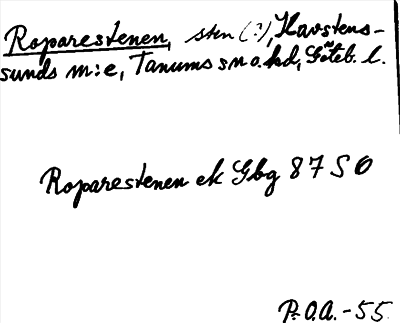 Roparestenen, sten (?), Havstens-
sunds m:e, Tanums sn o. hd, Göteb. l.
Roparestenen ek Gbg 87 SO
P.O.A. -55.